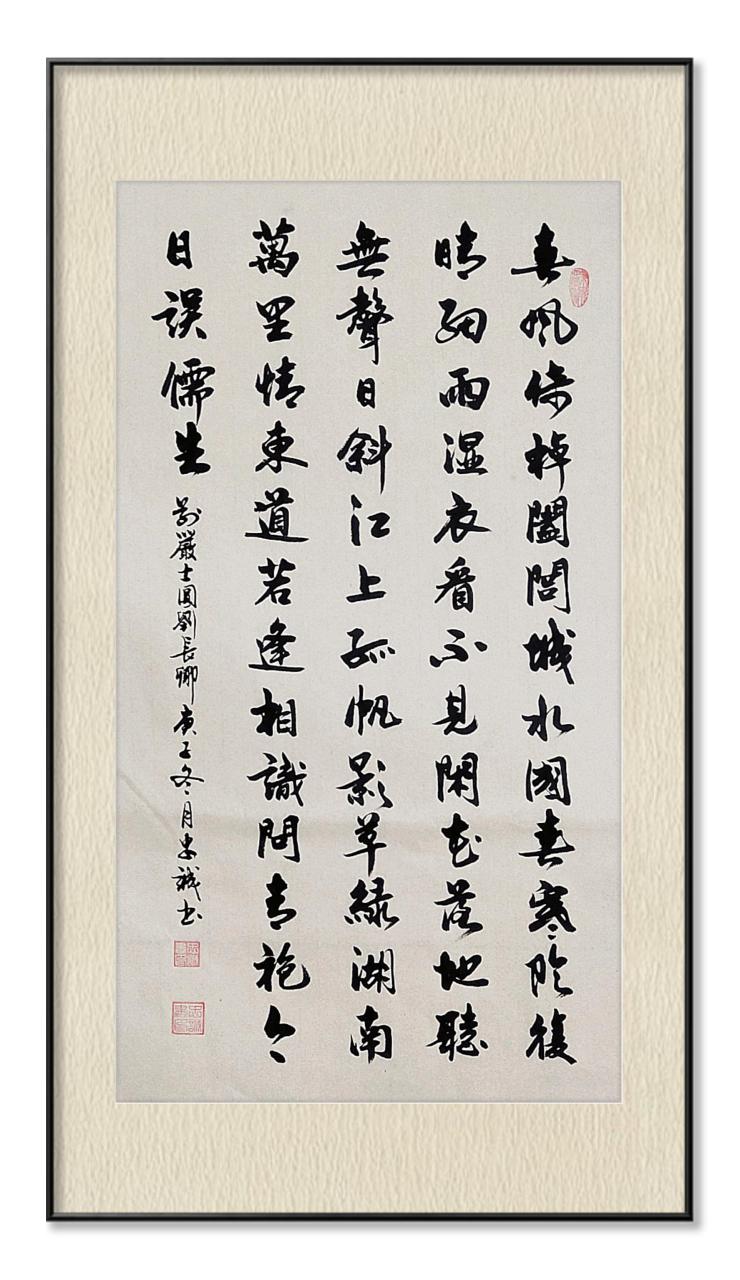 春風倚棹闔閭城水國春寒陰復
晴細雨湿衣看不見閑花落地聽
無聲日斜江上孤帆影草綠湖南
萬里情東道若逢相識問青袍今
日誤儒生
別嚴士圓劉長卿庚子冬月忠誠书